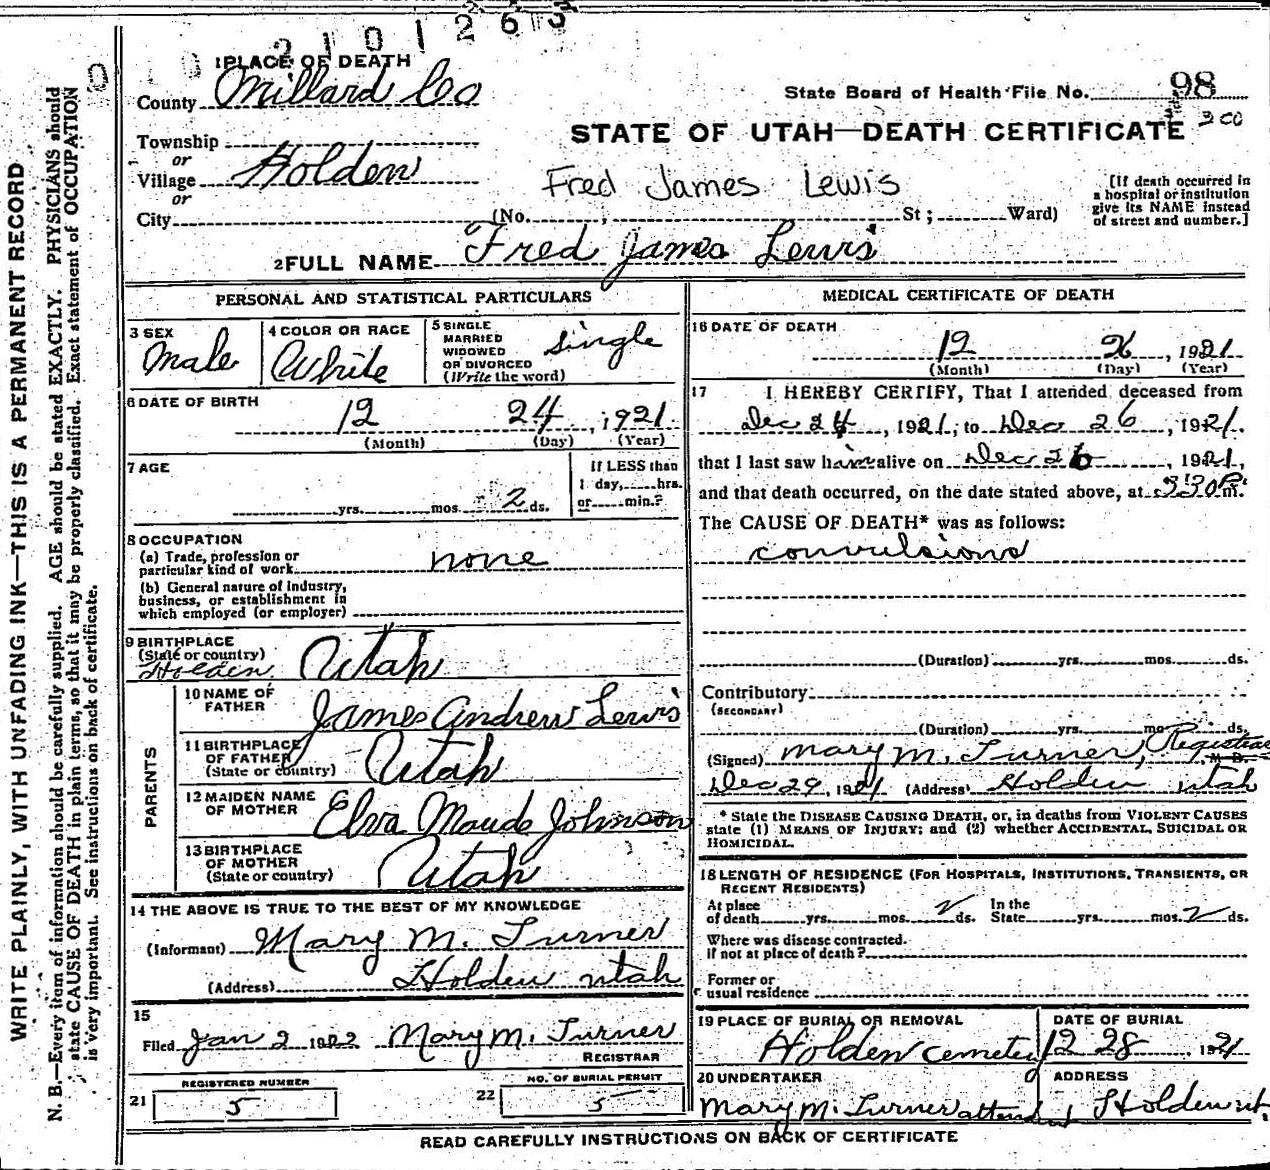 2101263
1 PLACE OF DEATH
County Millard Co
State Board of Health File No. 98
STATE OF UTAH—DEATH CERTIFICATE
300
Township
or
Village Holden
or
City
Fred James Lewis
(No. , St ; Ward)
[If death occurred in
a hospital or institution
give its NAME instead
of street and number.]
2 FULL NAME Fred James Lewis
PERSONAL AND STATISTICAL PARTICULARS
3 SEX
Male
4 COLOR OR RACE
White
5 SINGLE
MARRIED
WIDOWED
OR DIVORCED
(Write the word)
single
6 DATE OF BIRTH
12 24, 1921
(Month) (Day) (Year)
7 AGE
yrs. mos. 2 ds.
If LESS than
1 day, hrs.
or min.?
8 OCCUPATION
(a) Trade, profession or
particular kind of work none
(b) General nature of industry,
business, or establishment in
which employed (or employer)
9 BIRTHPLACE
(State or country)
Holden Utah
PARENTS
10 NAME OF
FATHER
James Andrew Lewis
11 BIRTHPLACE
OF FATHER
(State or country)
Utah
12 MAIDEN NAME
OF MOTHER
Elva Maude Johnson
13 BIRTHPLACE
OF MOTHER
(State or country)
Utah
14 THE ABOVE IS TRUE TO THE BEST OF MY KNOWLEDGE
(Informant) Mary M. Turner
(Address) Holden utah
15
Filed Jan 2 1922 Mary M. Turner
REGISTRAR
REGISTERED NUMBER
21 5
NO. OF BURIAL PERMIT
22 5
MEDICAL CERTIFICATE OF DEATH
16 DATE OF DEATH
12 26, 1921
(Month) (Day) (Year)
17 I HEREBY CERTIFY, That I attended deceased from
Dec 24, 1921, to Dec 26, 1921.
that I last saw him alive on Dec 26, 1921,
and that death occurred, on the date stated above, at 330 P. m.
The CAUSE OF DEATH* was as follows:
convulsions
(Duration) yrs. mos. ds.
Contributory
(SECONDARY)
(Duration) yrs. mos. ds.
(Signed) Mary M. Turner, Registrar M. D.
Dec 29, 1921 (Address) Holden utah
* State the DISEASE CAUSING DEATH, or, in deaths from VIOLENT CAUSES
state (1) MEANS OF INJURY; and (2) whether ACCIDENTAL, SUICIDAL OR
HOMICIDAL.
18 LENGTH OF RESIDENCE (FOR HOSPITALS, INSTITUTIONS, TRANSIENTS, OR
RECENT RESIDENTS)
At place
of death yrs. mos. 2 ds. In the
State yrs. mos. 2 ds.
Where was disease contracted.
if not at place of death?
Former or
usual residence
19 PLACE OF BURIAL OR REMOVAL
Holden cemetery
DATE OF BURIAL
12 28, 1921
20 UNDERTAKER
Mary M. Turner attend
ADDRESS
Holden ut.
READ CAREFULLY INSTRUCTIONS ON BACK OF CERTIFICATE
WRITE PLAINLY, WITH UNFADING INK—THIS IS A PERMANENT RECORD
N. B.—Every item of information should be carefully supplied. AGE should be stated EXACTLY. PHYSICIANS should
state CAUSE OF DEATH in plain terms, so that it may be properly classified. Exact statement of OCCUPATION
is very important. See instructions on back of certificate.